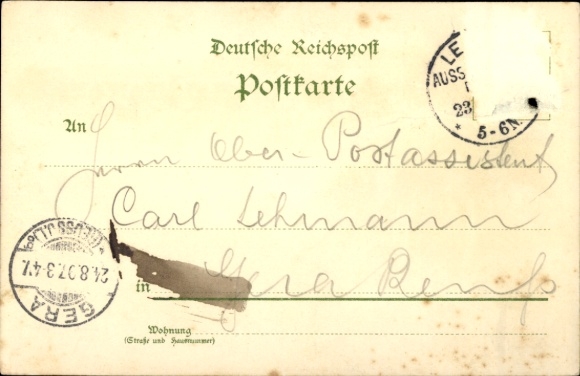 Deutsche Reichspost
Postkarte
LE
AUSS
23
* 5-6N.
An
Herrn Ober-Postassistent
Carl Lehmann
in Gera Reuß
GERA
24.8.97.3-4N.
(REUSS J.L.)
Wohnung
(Straße und Hausnummer)